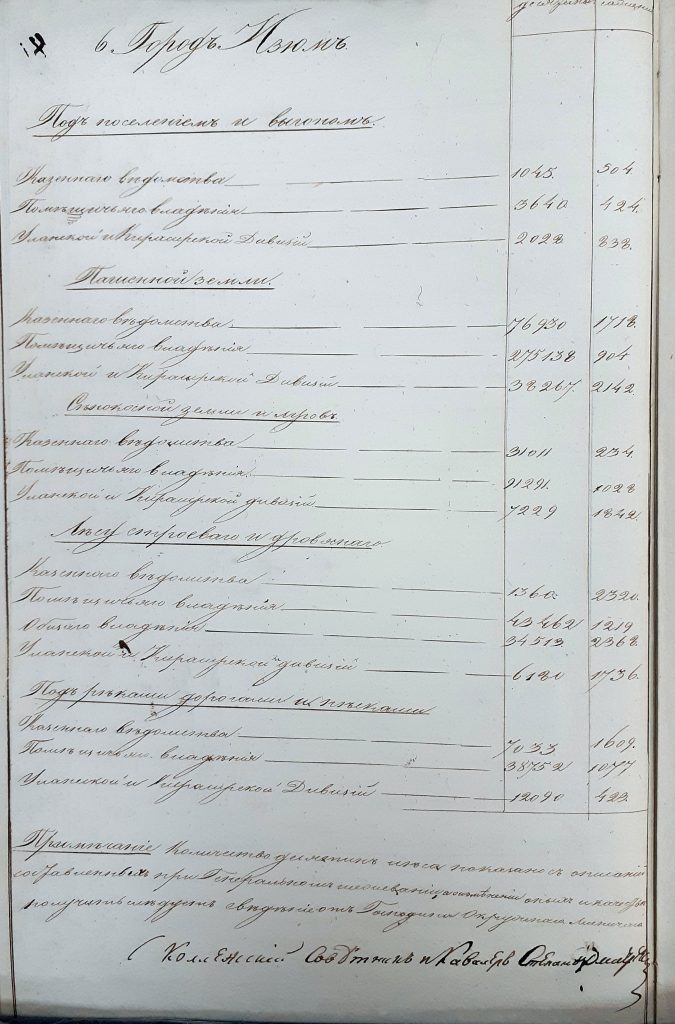 десятины сажени
6. Городъ Изюмъ.
Подъ поселеніемъ и выгономъ.
Казеннаго вѣдомства 1045. 504.
Помѣщичьяго владѣнія 3640 424.
Уланской и Кирасирской Дивизій 2028 838.
Пашенной земли.
Казеннаго вѣдомства 76930 1718.
Помѣщичьяго владѣнія 275138 904
Уланской и Кирасирской Дивизій 38267. 2142.
Сѣнокосной земли и луговъ.
Казеннаго вѣдомства 31011 234.
Помѣщичьяго владѣнія. 91291. 1028
Уланской и Кирасирской дивизій 7229 1842.
Лѣсу строеваго и дровянаго
Казеннаго вѣдомства 1360. 2320.
Помѣщичьяго владѣнія 43462 1219
Общаго владѣнія 34513 2368.
Уланской и Кирасирской дивизій 6180 1736.
Подъ рѣками дорогами и песками
Казеннаго вѣдомства 7033 1609.
Помѣщичьяго владѣнія 38752 1077
Уланской и Кирасирской Дивизій 12090 423.
Примѣчаніе Количество десятинъ лѣса показано съ описаній
составленныхъ при Генеральномъ межеваніи, а о
получить слѣдуетъ свѣдѣніе отъ Господина Окружнаго
Коллежскій Совѣтникъ и Кавалеръ Степанъ